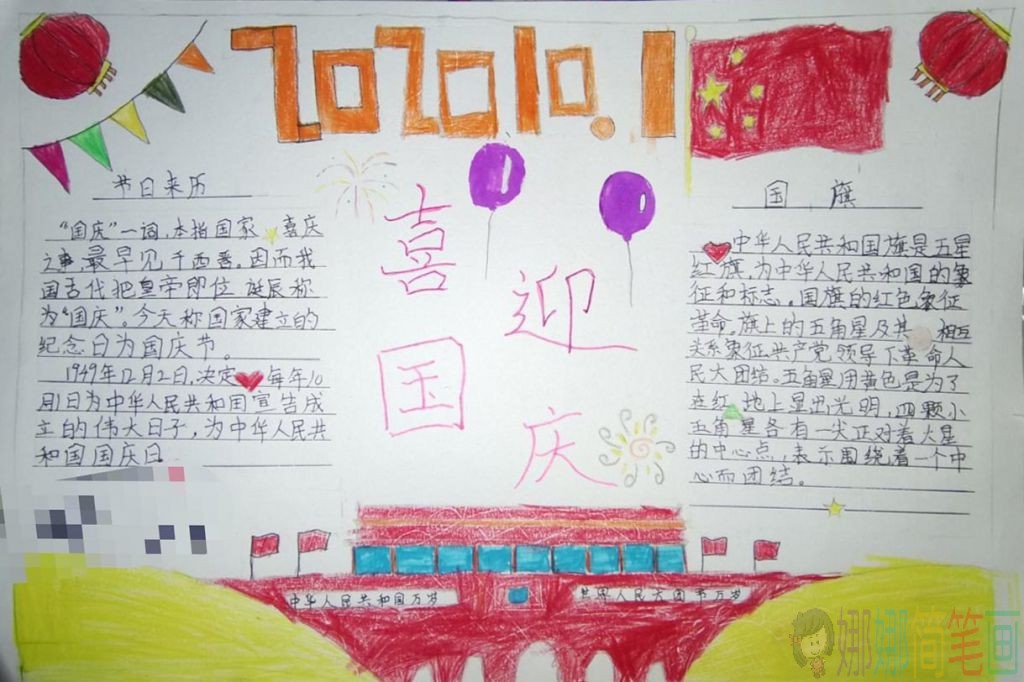 2020 10.1
节日来历
“国庆”一词,本指国家喜庆
之事,最早见于西晋。因而我
国古代把皇帝即位、诞辰称
为“国庆”。今天称国家建立的
纪念日为国庆节。
1949年12月2日,决定每年10
月1日为中华人民共和国宣告成
立的伟大日子,为中华人民共
和国国庆日
喜迎
国庆
国旗
中华人民共和国旗是五星
红旗,为中华人民共和国的象
征和标志。国旗的红色象征
革命,旗上的五角星及其相互
关系象征共产党领导下革命人
民大团结。五角星用黄色是为了
在红地上显出光明,四颗小
五角星各有一尖正对着大星
的中心点,表示围绕着一个中
心而团结。
中华人民共和国万岁
世界人民大团节万岁
娜娜简笔画